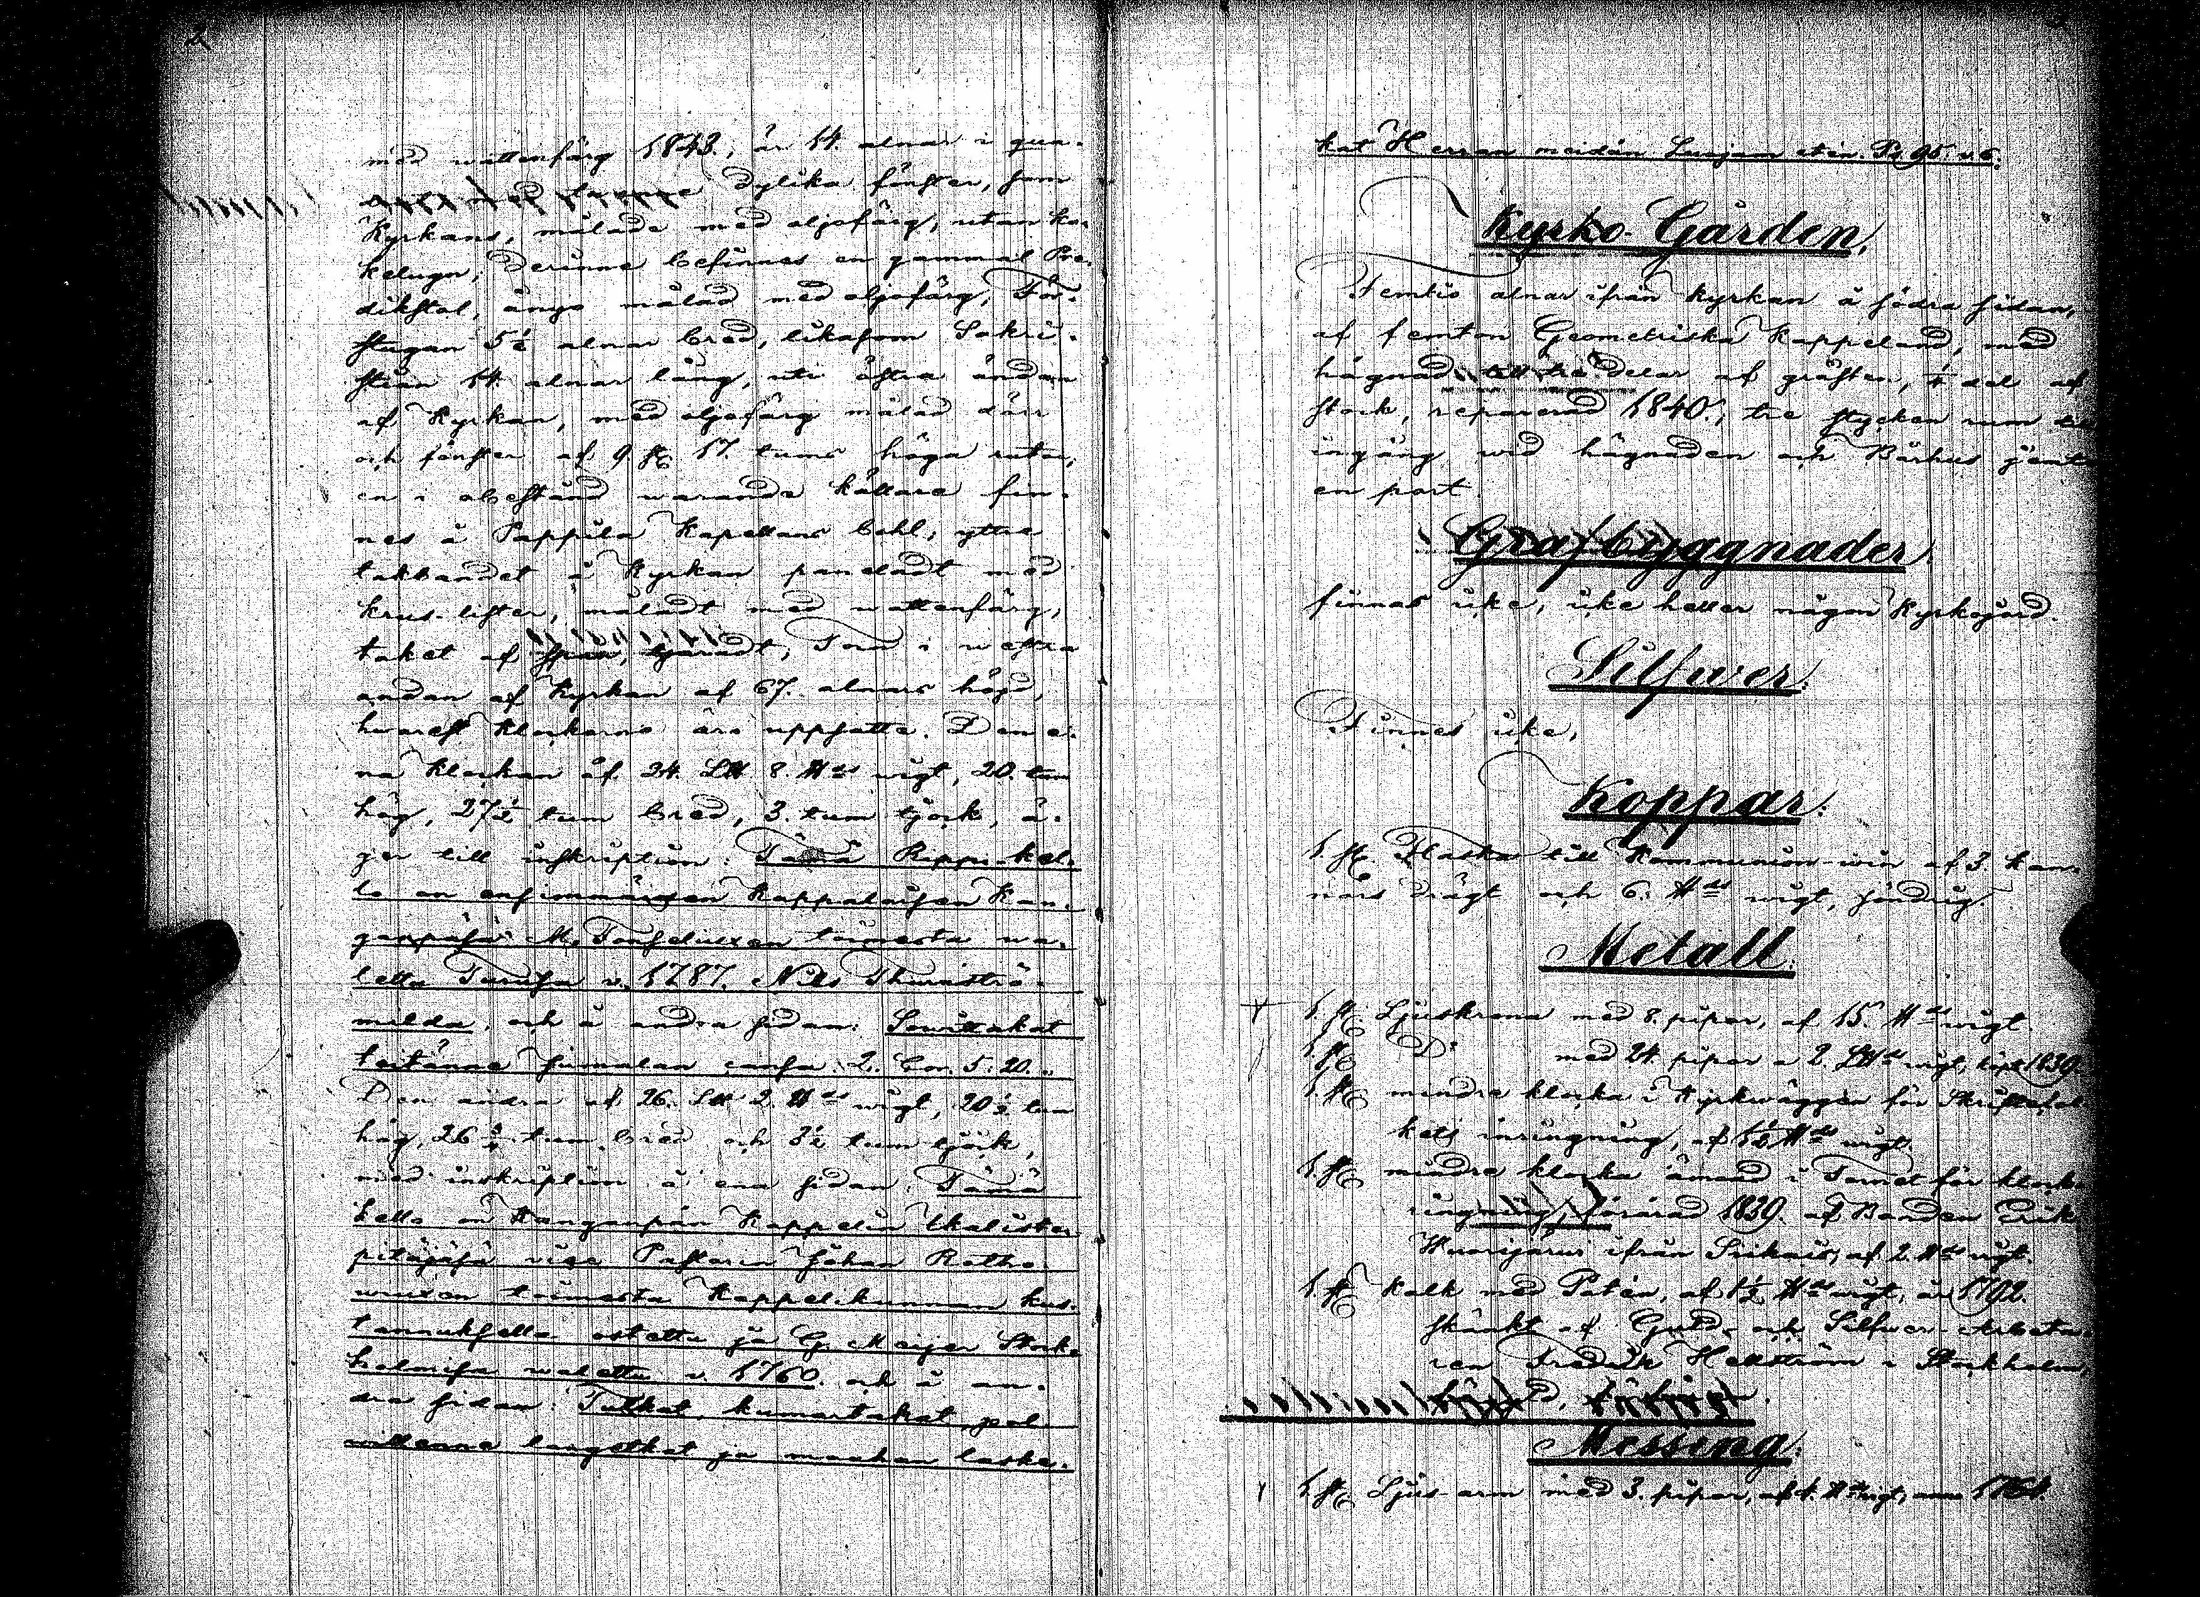 2
med wattenfärg 1843, är 14 alnar i qua-
dylika fönster, som
Kyrkans, målade med oljofärg, utan ka-
kelugn; Derinne befinnes en gammal Pre-
dikstol, ängs målad med oljofärg, För-
stugan 5½ alnar bred, likasom Sakri-
stian 14 alnar lång, uti östra ändan
af Kyrkan, med oljofärg målad dörr
och fönster af 9 st. 17 tums höga rutor,
en i obestånd warande källare fin-
nes å Pappila Kapellans bohl, yttre
takbandet å Kyrkan paneladt med
krus-lister, måladt med wattenfärg,
taket af tjäradt, Torn i westra
ändan af Kyrkan af 67. alnars höjd,
hwarest Klockorna äro uppsatte. Den e-
na Klockan af 24. L℔ 8. ℔ds wigt, 20. tum
hög, 27½ tum bred, 3. tum tjock, ä-
ger till inskription: Tämä Rippu-kel-
lo on ensimmäisen Kappalaisen Kan-
gaspäsä M. Forseliuxen toimesta wa-
lettu Turusa v. 1787. Nils Thurströ-
mildä, och å andra sidan: Sowittakat
teitänne Jumalan cansa. 2. Cor. 5: 20.
Den andra af 26. L℔ 2. ℔ds wigt, 20½ tum
hög, 26¾ tum bred och 3½ tum tjock,
med inskription å ena sidan: Tämä
kello on Kanganpän Kappelin Ikalisten
pitäjäsä vice Pastorin Johan Rotho-
wiuxen toimesta Kappelikunnan kus-
tannuxella ostettu ja G. Meijer Stock-
holmisa walettu v. 1760. och å an-
dra sidan: Tulkat, kumartakat, pol-
willenne langetkat ja maahan laske-
kat Herran meidän Luojam eten. Ps. 95. v. 6.
Kyrko-Gården,
Femtio alnar ifrån Kyrkan å södra sidan,
af femton Geometriska Kappeland, med
hägnad till tre delar af gråsten, ¼ del af
stock, reparerad 1840., tre stycken rum till
ingång wid hägnaden och Bårhus jemte
en port.
Grafbyggnader
finnas icke, icke heller någon Kyrkogård.
Silfwer.
Finnes icke,
Koppar.
1 st. Flaska till Kommunion-win af 3. kan-
nors drägt och 6. ℔ds wigt, söndrig
Metall.
1 st. Ljuskrona med 8. pipor, af 15. ℔ds wigt
1 st. Do med 24. pipor a 2. L℔ds wigt, köpt 1839.
1 st. mindre klocka i Kyrkwäggen för Skriftefol-
kets inringning, af 1½ ℔ds wigt.
1 st. mindre klocka ämnad i Tornet för klock-
ringning, förärad 1839. af Bonden Erik
Wuorijärwi ifrån Seikois, af 2. ℔ds wigt.
1 st. Kalk med Patén, af 1½ ℔ds wigt, år 1792.
skänkt af Guld- och Silfwer-Arbeta-
ren Fredrik Hellström i Stockholm,
Messing.
1 st. Ljus-arm med 3. pipor, af 4. ℔ds wigt, anno 1764.